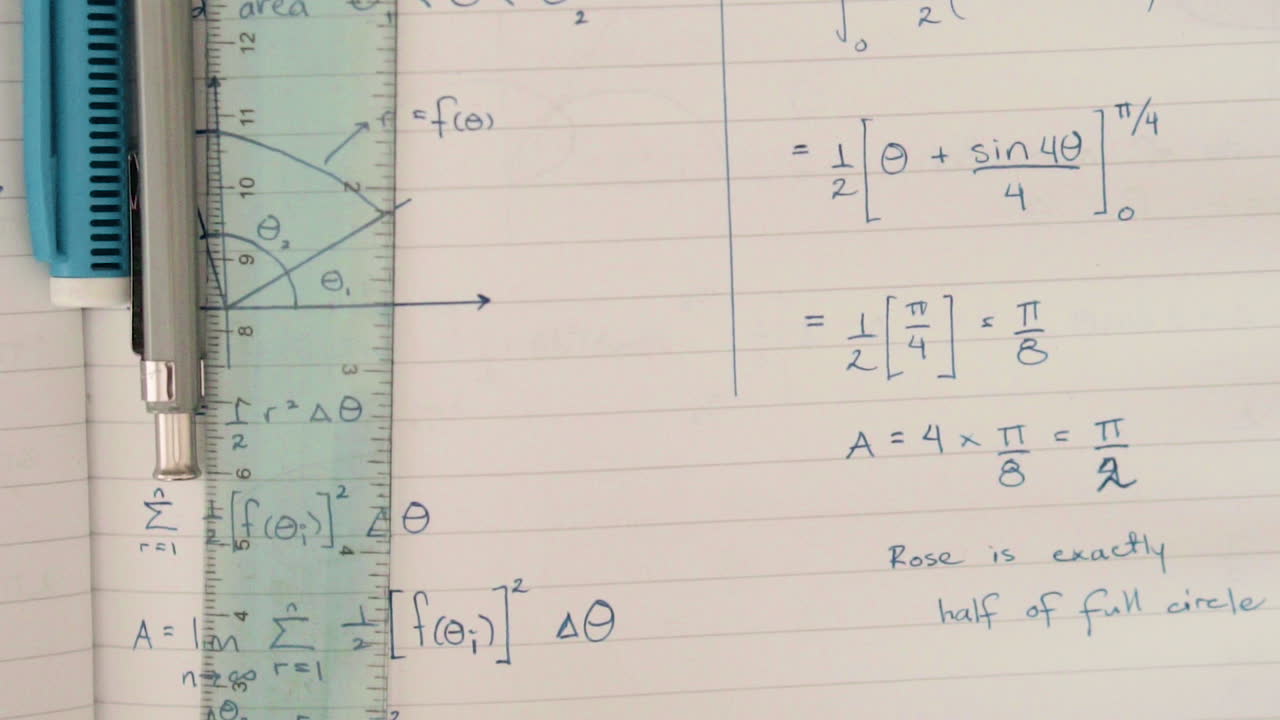 area
r = f(θ)
θ₂
θ₁
1/2 r² Δθ
∑ⁿᵣ₌₁ 1/2 [f(θᵢ)]² Δθ
A = lim n→∞ ∑ⁿᵣ₌₁ 1/2 [f(θᵢ)]² Δθ
12
11
10
9
8
7
6
5
4
3
2
3
4
= 1/2 [θ + sin 4θ/4]₀^π/4
= 1/2 [π/4] = π/8
A = 4 × π/8 = π/2
Rose is exactly
half of full circle